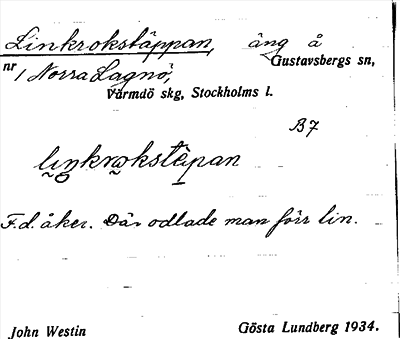 Linkrokstäppan, äng å
Gustavsbergs sn,
nr 1 Norra Lagnö,
Värmdö skg, Stockholms l.
B7
liŋkrokstèpan
F.d. åker. Där odlade man förr lin.
John Westin Gösta Lundberg 1934.